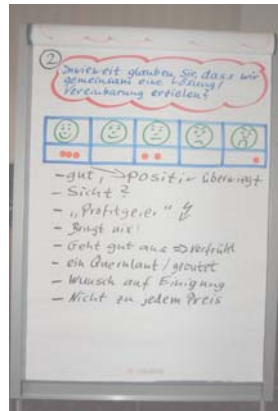 2.
Inwieweit glauben Sie, dass wir
gemeinsam eine Lösung/
Vereinbarung erzielen?
- gut, → positiv überwiegt
- Sicht?
- "Profitgeier"
- Bringt nix!
- Geht gut aus => verfrüht
- ein Querulant / geoutet
- Wunsch auf Einigung
- Nicht zu jedem Preis